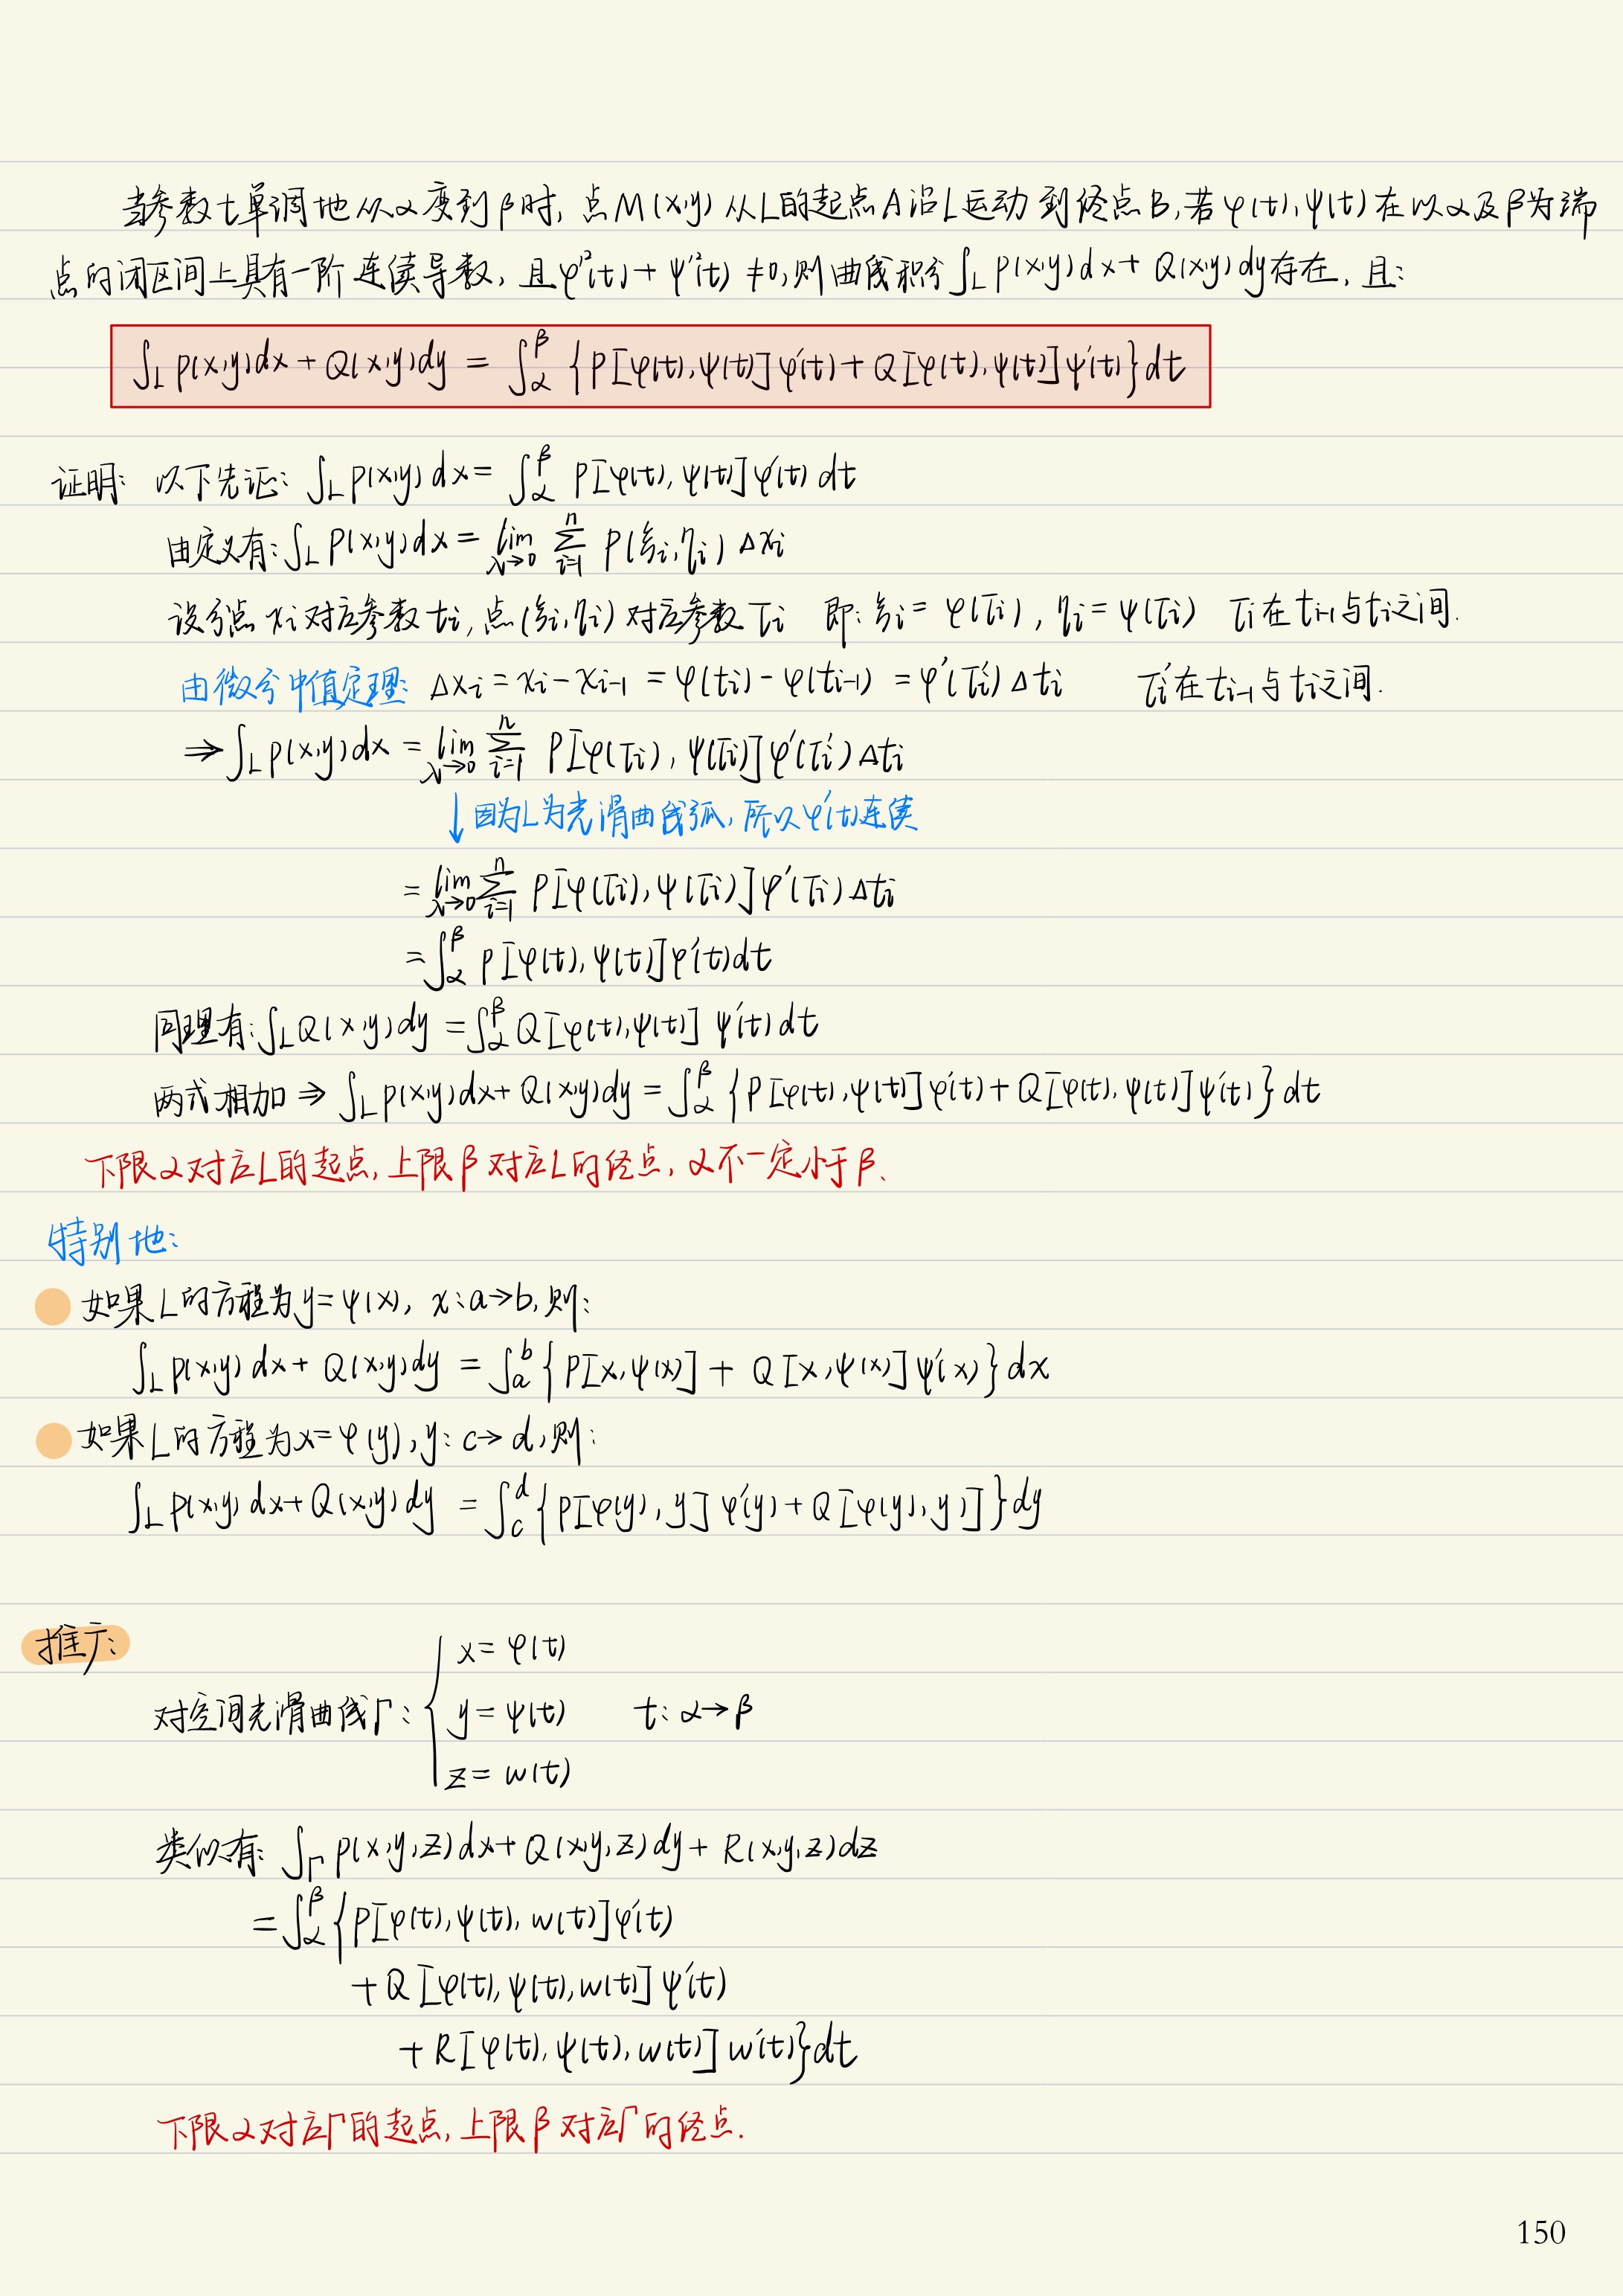 当参数t单调地从α变到β时, 点M(x,y)从L的起点A沿L运动到终点B,若φ(t),ψ(t)在以α及β为端
点的闭区间上具有一阶连续导数, 且φ'²(t)+ψ'²(t)≠0,则曲线积分∫_L P(x,y)dx+Q(x,y)dy存在, 且:
∫_L P(x,y)dx+Q(x,y)dy = ∫_α^β {P[φ(t),ψ(t)]φ'(t)+Q[φ(t),ψ(t)]ψ'(t)}dt
证明: 以下先证: ∫_L P(x,y)dx = ∫_α^β P[φ(t),ψ(t)]φ'(t)dt
由定义有: ∫_L P(x,y)dx = lim_{λ→0} Σ_{i=1}^n P(ξi,ηi)Δxi
设分点xi对应参数ti,点(ξi,ηi)对应参数τi 即: ξi=φ(τi), ηi=ψ(τi) τi在ti-1与ti之间.
由微分中值定理: Δxi=xi-xi-1=φ(ti)-φ(ti-1)=φ'(τi')Δti τi'在ti-1与ti之间.
⇒∫_L P(x,y)dx = lim_{λ→0} Σ_{i=1}^n P[φ(τi),ψ(τi)]φ'(τi')Δti
↓因为L为光滑曲线弧, 所以φ'(t)连续
= lim_{λ→0} Σ_{i=1}^n P[φ(τi),ψ(τi)]φ'(τi)Δti
=∫_α^β P[φ(t),ψ(t)]φ'(t)dt
同理有: ∫_L Q(x,y)dy = ∫_α^β Q[φ(t),ψ(t)]ψ'(t)dt
两式相加 ⇒ ∫_L P(x,y)dx+Q(x,y)dy = ∫_α^β {P[φ(t),ψ(t)]φ'(t)+Q[φ(t),ψ(t)]ψ'(t)}dt
下限α对应L的起点, 上限β对应L的终点, α不一定小于β.
特别地:
如果L的方程为y=ψ(x), x:a→b,则:
∫_L P(x,y)dx+Q(x,y)dy = ∫_a^b {P[x,ψ(x)]+Q[x,ψ(x)]ψ'(x)}dx
如果L的方程为x=φ(y), y:c→d,则:
∫_L P(x,y)dx+Q(x,y)dy = ∫_c^d {P[φ(y),y]φ'(y)+Q[φ(y),y)]}dy
推广:
x=φ(t)
对空间光滑曲线Γ: { y=ψ(t) t:α→β
z=w(t)
类似有: ∫_Γ P(x,y,z)dx+Q(x,y,z)dy+R(x,y,z)dz
=∫_α^β {P[φ(t),ψ(t),w(t)]φ'(t)
+Q[φ(t),ψ(t),w(t)]ψ'(t)
+R[φ(t),ψ(t),w(t)]w'(t)}dt
下限α对应Γ的起点, 上限β对应Γ的终点.
150